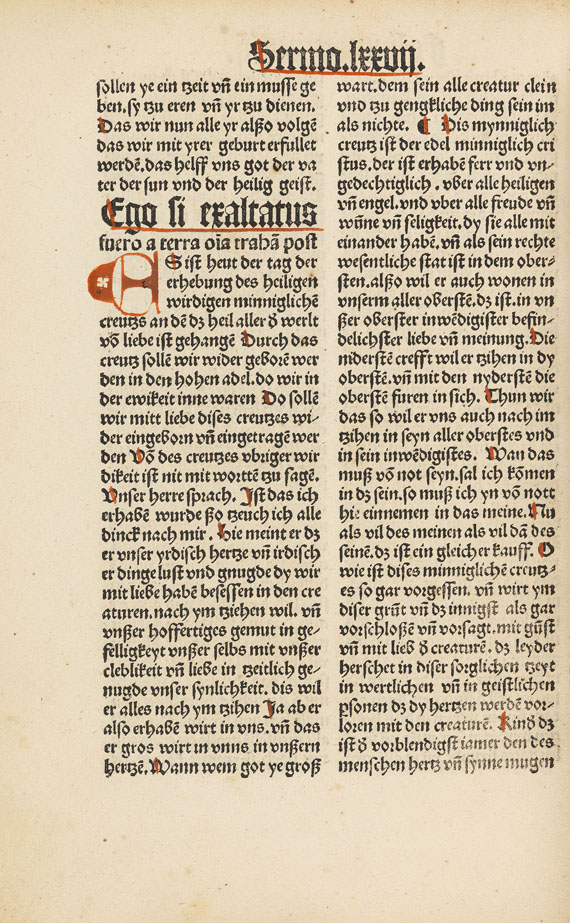 Sermo.lxxvij.
sollen ye ein tzeit vñ ein musse ge
ben.sy tzu eren vñ yr tzu dienen.
Das wir nun alle yr alßo volgē
das wir mit yrer geburt erfullet
werdē.das helff vns got der va
ter der sun vnd der heilig geist.
Ego si exaltatus
fuero a terra oīa trahā post
ES ist heut der tag der
erhebung des heiligen
wirdigen minniglichē
creutzs an dē dz heil aller d̕ werlt
vō liebe ist gehangē Durch das
creutz sollē wir wider geborē wer
den in den hohen adel.do wir in
der ewikeit inne waren Do sollē
wir mitt liebe dises creutzes wi⸗
der eingeborn vñ eingetragē wer
den Vō des creutzes vbriger wir
dikeit ist nit mit worttē tzu sagē.
Vnser herre sprach. Ist das ich
erhabē wurde ßo tzeuch ich alle
dinck nach mir. Hie meint er dz
er vnser yrdisch hertze vñ irdisch
er dinge lust vnd gnugde dy wir
mit liebe habē besessen in den cre
aturen.nach ym tziehen wil. vñ
vnßer hoffertiges gemut in ge⸗
felligkeyt vnßer selbs mit vnßer
cleblikeit vñ liebe in tzeitlich ge⸗
nugde vnser synlichkeit. dis wil
er alles nach ym tzihen Ja ab er
also erhabē wirt in vns.vñ das
er gros wirt in vnns in vnßern
hertzē.Wann wem got ye groß
wart.dem sein alle creatur clein
vnd tzu gengkliche ding sein im
als nichte. ¶ Dis mynniglich
creutz ist der edel minniglich cri
stus.der ist erhabē ferr vnd vn⸗
gedechtiglich. vber alle heiligen
vñ engel.vnd vber alle freude vñ
wūne vñ seligkeit.dy sie alle mit
einander habē.vñ als sein rechte
wesentliche stat ist in dem ober⸗
sten.alßo wil er auch wonen in
vnserm aller oberstē.dz ist.in vn
ßer oberster inwēdigister befin⸗
delichster liebe vñ meinung.Die
niderstē crefft wil er tzihen in dy
oberstē.vñ mit den nyderstē die
oberstē furen in sich. Thun wir
das so wil er vns auch nach im
tzihen in seyn aller oberstes vnd
in sein inwēdigistes. Wan das
muß vō not seyn.sal ich kōmen
in dz sein.so muß ich yn vō nott
hie einnemen in das meine.Nu
als vil des meinen als vil dā des
seinē.dz ist ein gleicher kauff. O
wie ist dises minniglichē creutz⸗
es so gar vorgessen. vñ wirt ym
diser grūt vñ dz innigst als gar
vorschloßē vñ vorsagt.mit gūst
vñ mit lieb d̕ creaturē. dz leyder
herschet in diser sorglichen tzeyt
in wertlichen vñ in geistlichen
ꝑsonen dz dy hertzen werdē vor⸗
loren mit den creaturē. Kind̕ dz
ist d̕ vorblendigst iamer den des
menschen hertz vñ synne mugen